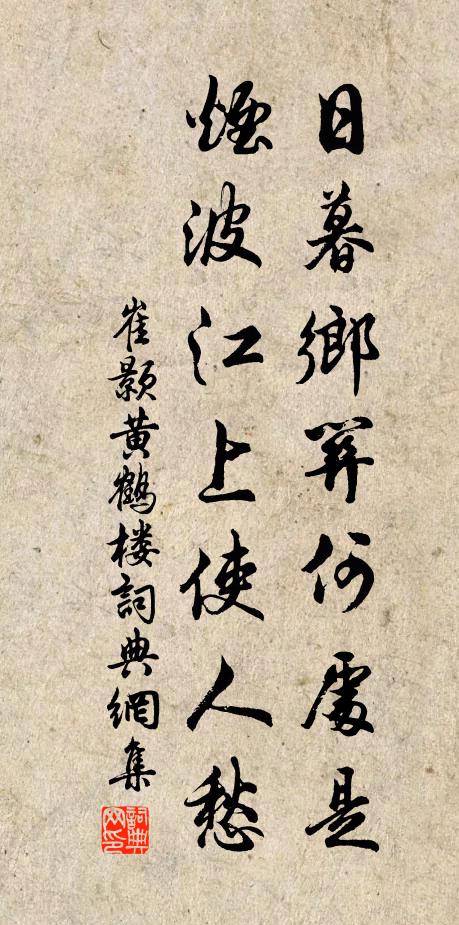 日暮鄉關何處是
煙波江上使人愁
崔顥黄鶴楼詞典網集
詞典网印